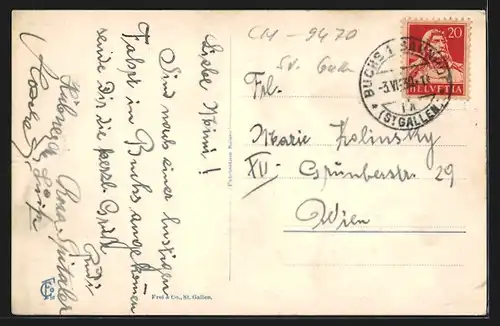 CM-9470
Sv. Gallen
20
HELVETIA
BUCHS 1
(ST GALLEN)
Liebe Mimi!
Sind nach einer lustigen
Fahrt in Buchs angekommen
sende Dir die herzl. Grüße
Rudi
Rosa Spitaler
Frl.
Marie Kalinsky
XII
Grünbergstr 29
Wien
Frei & Co., St. Gallen.